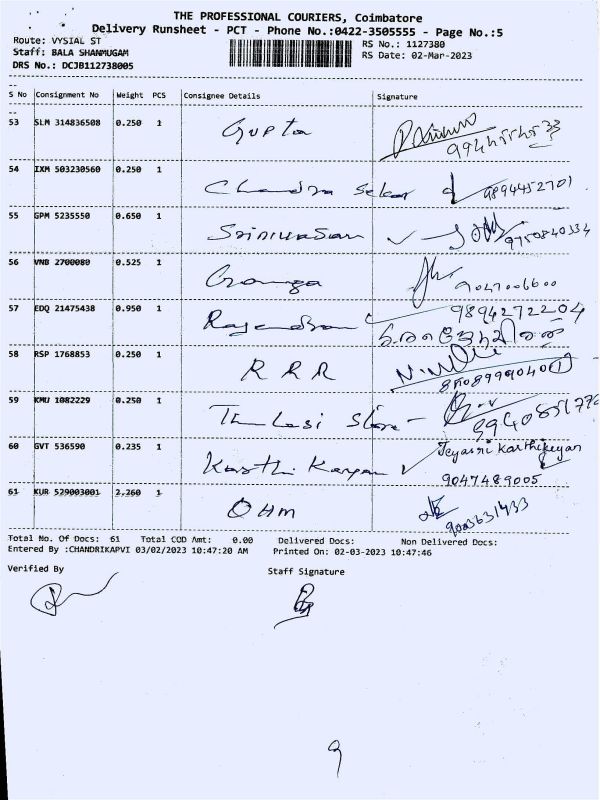 THE PROFESSIONAL COURIERS, Coimbatore
Delivery Runsheet - PCT - Phone No.:0422-3505555 - Page No.:5
Route: VYSIAL ST
RS No.: 1127380
Staff: BALA SHANMUGAM
RS Date: 02-Mar-2023
DRS No.: DCJB112738005
S No Consignment No Weight PCS Consignee Details Signature
53 SLM 314836508 0.250 1 Gupta
54 IXM 503230560 0.250 1 Chandra Sekar 9894452701
55 GPM 5235550 0.650 1 Srinivasan 9750840334
56 VNB 2700080 0.525 1 Ganga 9047006600
57 EDQ 21475438 0.950 1 Rajendran 9894272204
58 RSP 1768853 0.250 1 RRR
59 KMU 1082229 0.250 1 Thulasi Store
60 GVT 536590 0.235 1 Karthi Kayan Jeyasri Karthikeyan
9047489005
61 KUR 529003001 2.260 1 OHM 9003631433
Total No. Of Docs: 61 Total COD Amt: 0.00 Delivered Docs: Non Delivered Docs:
Entered By :CHANDRIKAPVI 03/02/2023 10:47:20 AM Printed On: 02-03-2023 10:47:46
Verified By Staff Signature
9